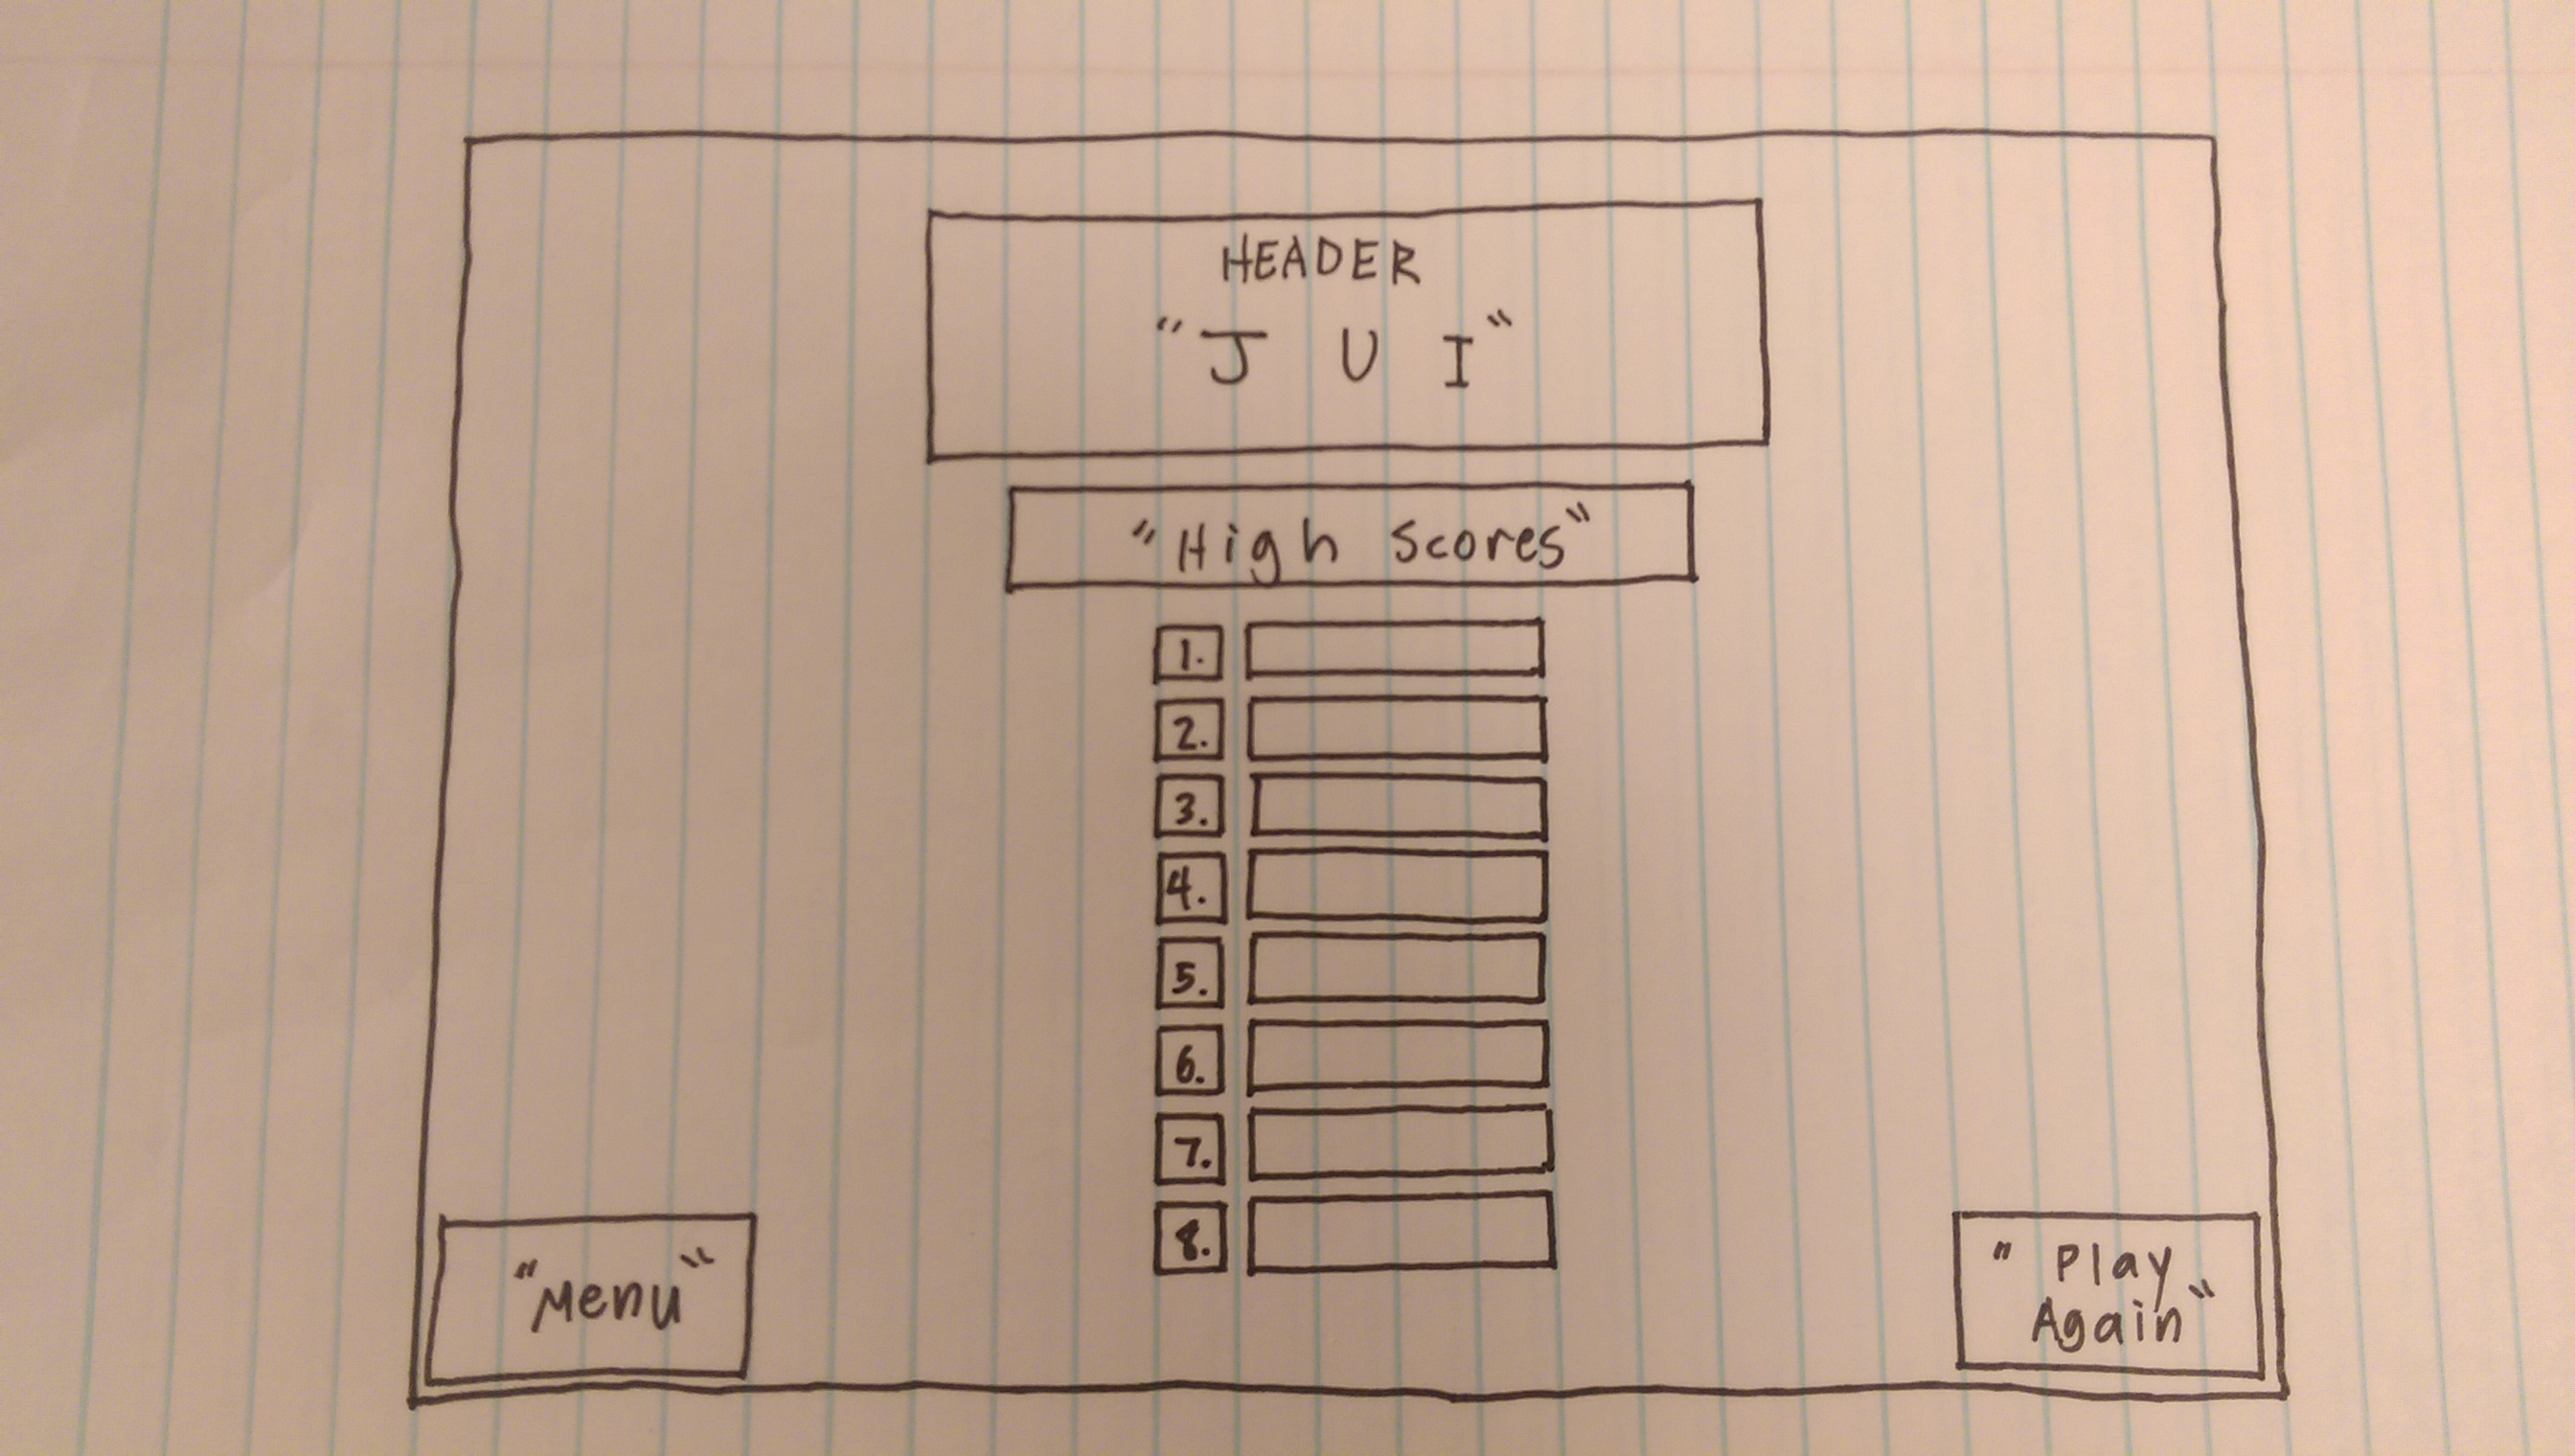 HEADER
"J U I"
"High Scores"
1.
2.
3.
4.
5.
6.
7.
8.
"Menu"
"Play
Again"